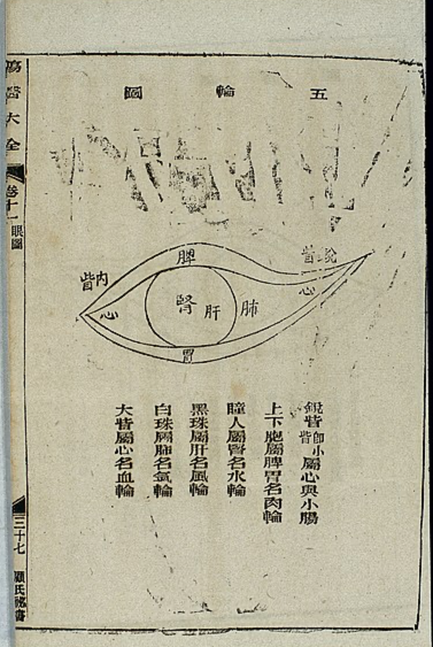 五輪圖
銳眥
心
脾
內眥
心
腎
肝
肺
胃
銳眥即小眥屬心與小腸
上下胞屬脾胃名肉輪
瞳人屬腎名水輪
黑珠屬肝名風輪
白珠屬肺名氣輪
大眥屬心名血輪
瘍醫大全
卷十一
眼圖
三十七
顧氏秘書